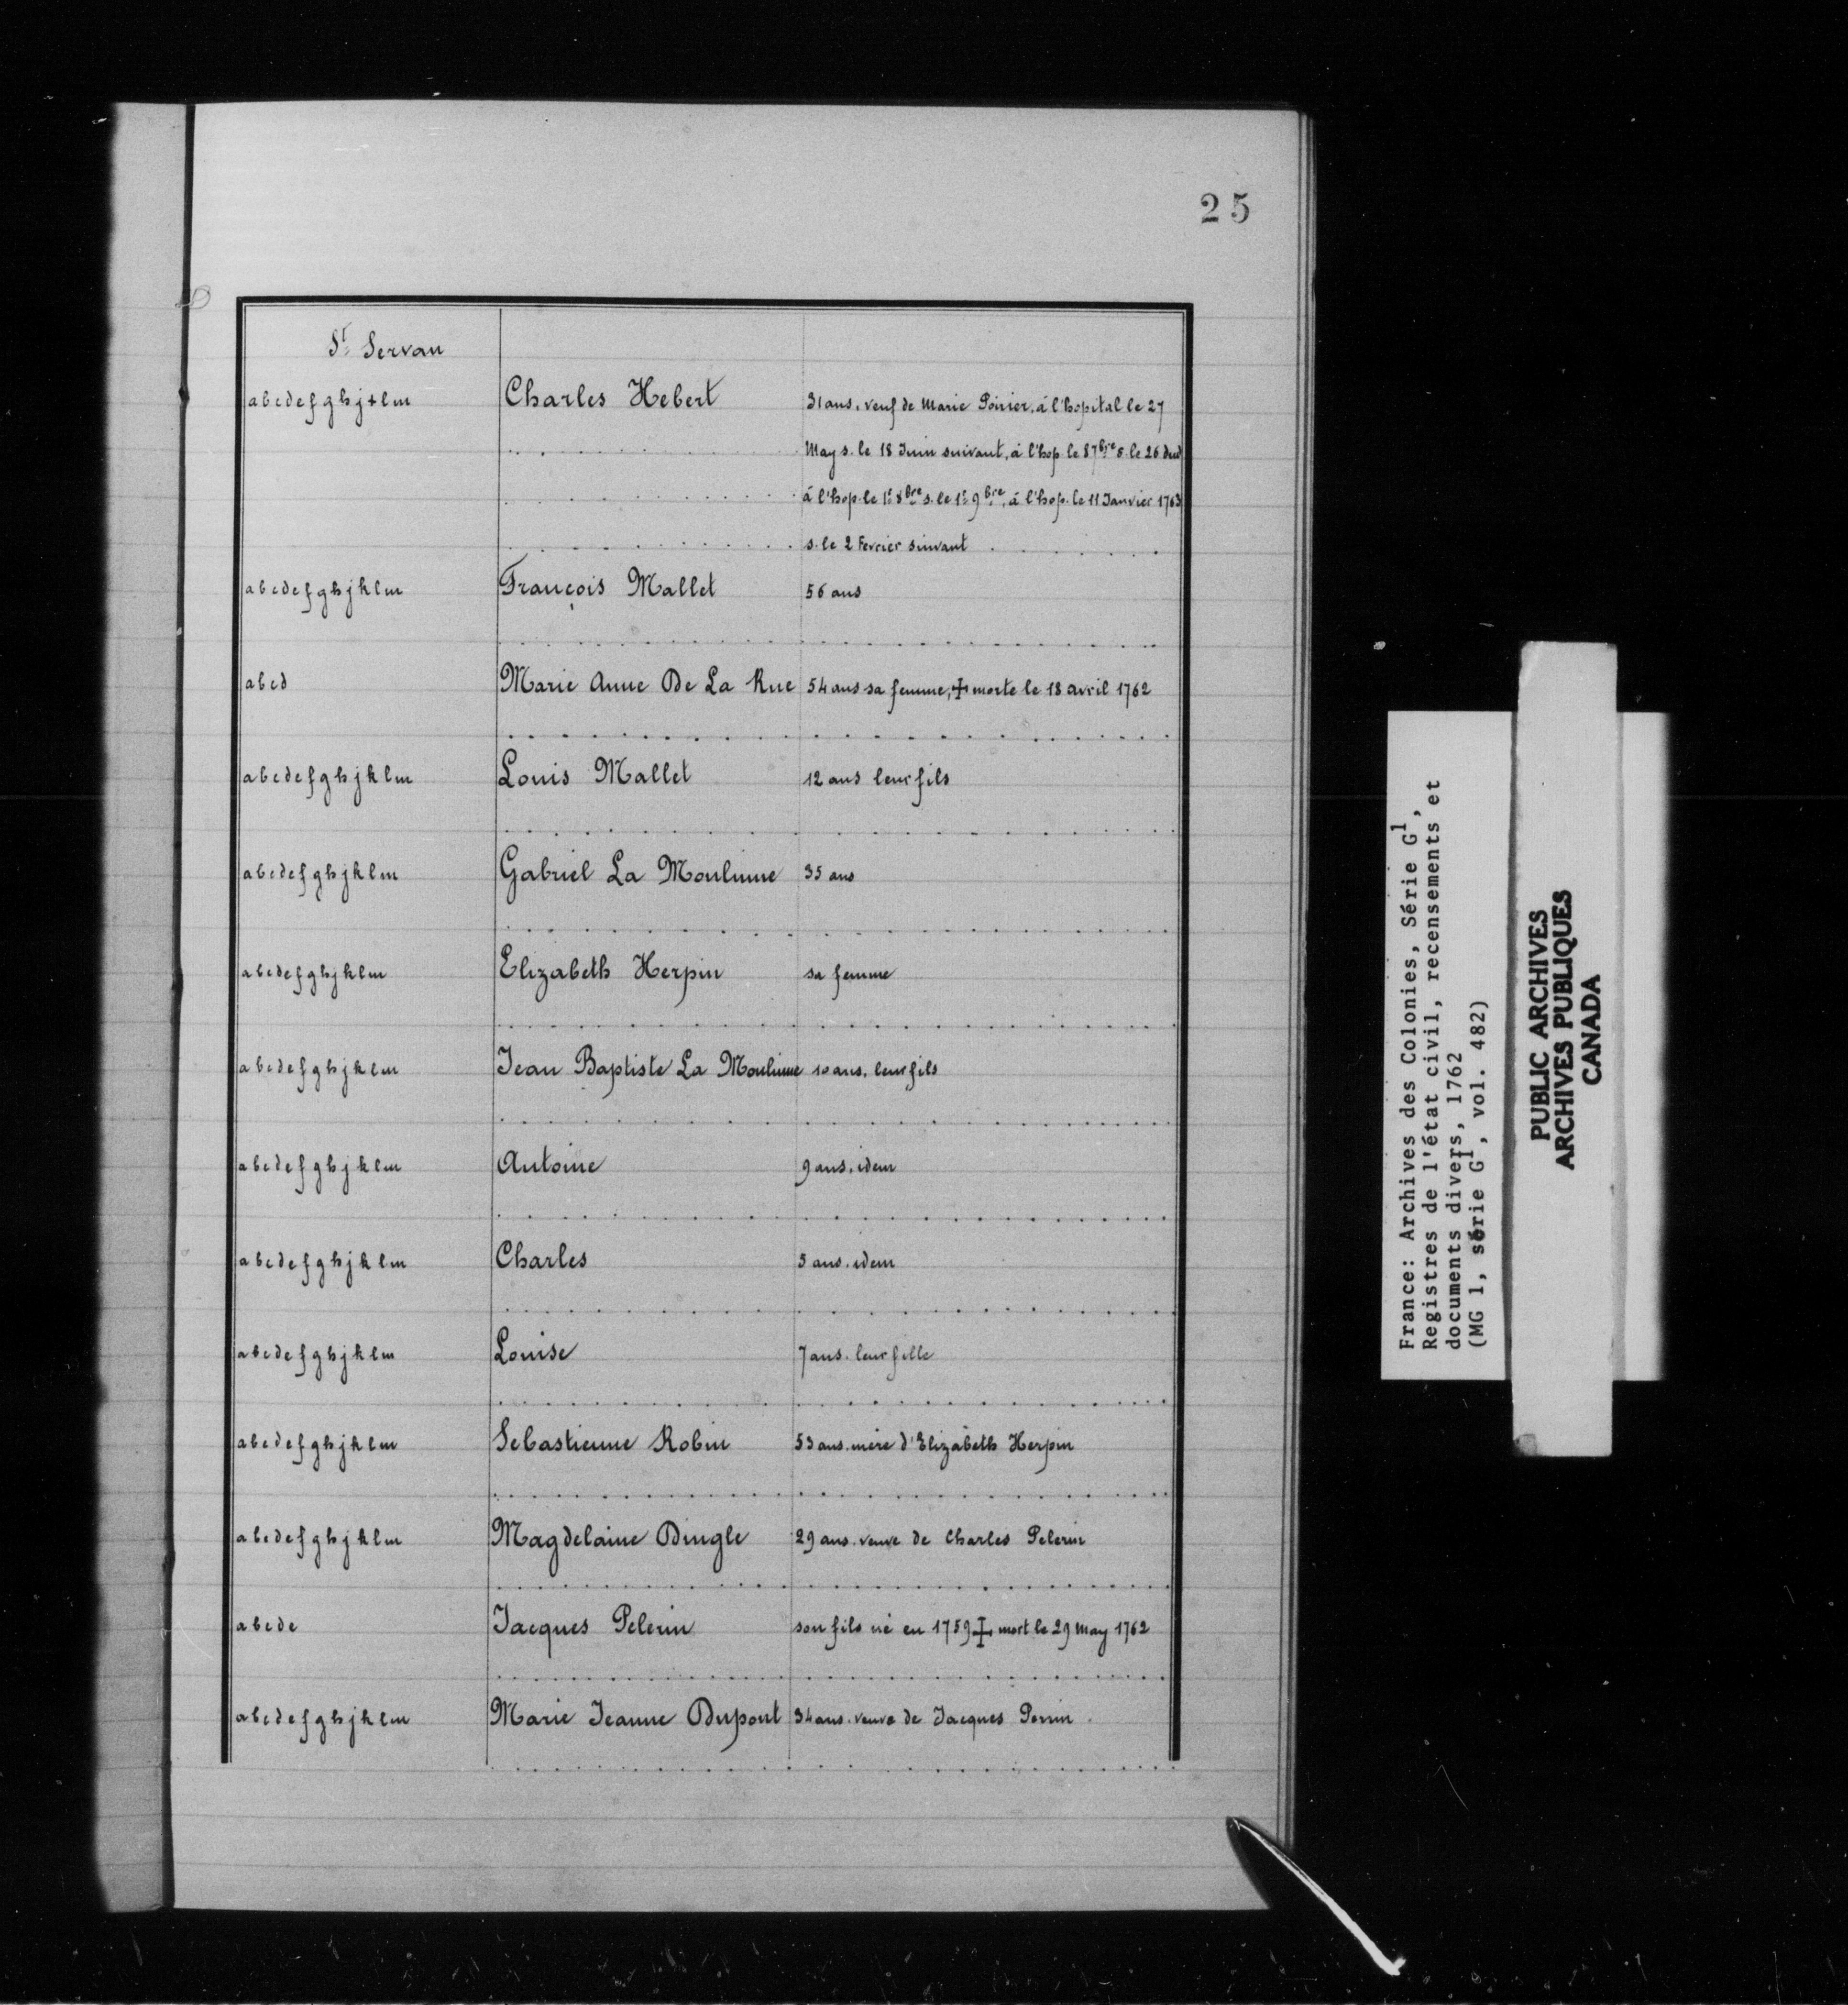 25
St Servan
abcdefghj+lm Charles Hebert 31 ans. veuf de Marie Poirier, à l'hopital le 27
May s. le 18 Juin suivant, à l'hop. le 8 7bre s. le 26 dud
à l'hop. le 1r 8bre s. le 1r 9bre, à l'hop. le 11 Janvier 1763
s. le 2 Fevrier suivant
abcdefghjklm François Mallet 56 ans
abcd Marie Anne De La Rue 54 ans sa femme, + morte le 18 avril 1762
abcdefghjklm Louis Mallet 12 ans leur fils
abcdefghjklm Gabriel La Moulinne 35 ans
abcdefghjklm Elizabeth Herpin sa femme
abcdefghjklm Jean Baptiste La Moulinne 10 ans. leur fils
abcdefghjklm Antoine 9 ans. idem
abcdefghjklm Charles 5 ans. idem
abcdefghjklm Louise 7 ans. leur fille
abcdefghjklm Sebastienne Robin 53 ans. mère d'Elizabeth Herpin
abcdefghjklm Magdelaine Dingle 29 ans. veuve de Charles Pelerin
abcde Jacques Pelerin son fils né en 1759 + mort le 29 May 1762
abcdefghjklm Marie Jeanne Dupont 34 ans. veuve de Jacques Perrin
France: Archives des Colonies, Série G1,
Registres de l'état civil, recensements et
documents divers, 1762
(MG 1, série G1, vol. 482)
PUBLIC ARCHIVES
ARCHIVES PUBLIQUES
CANADA